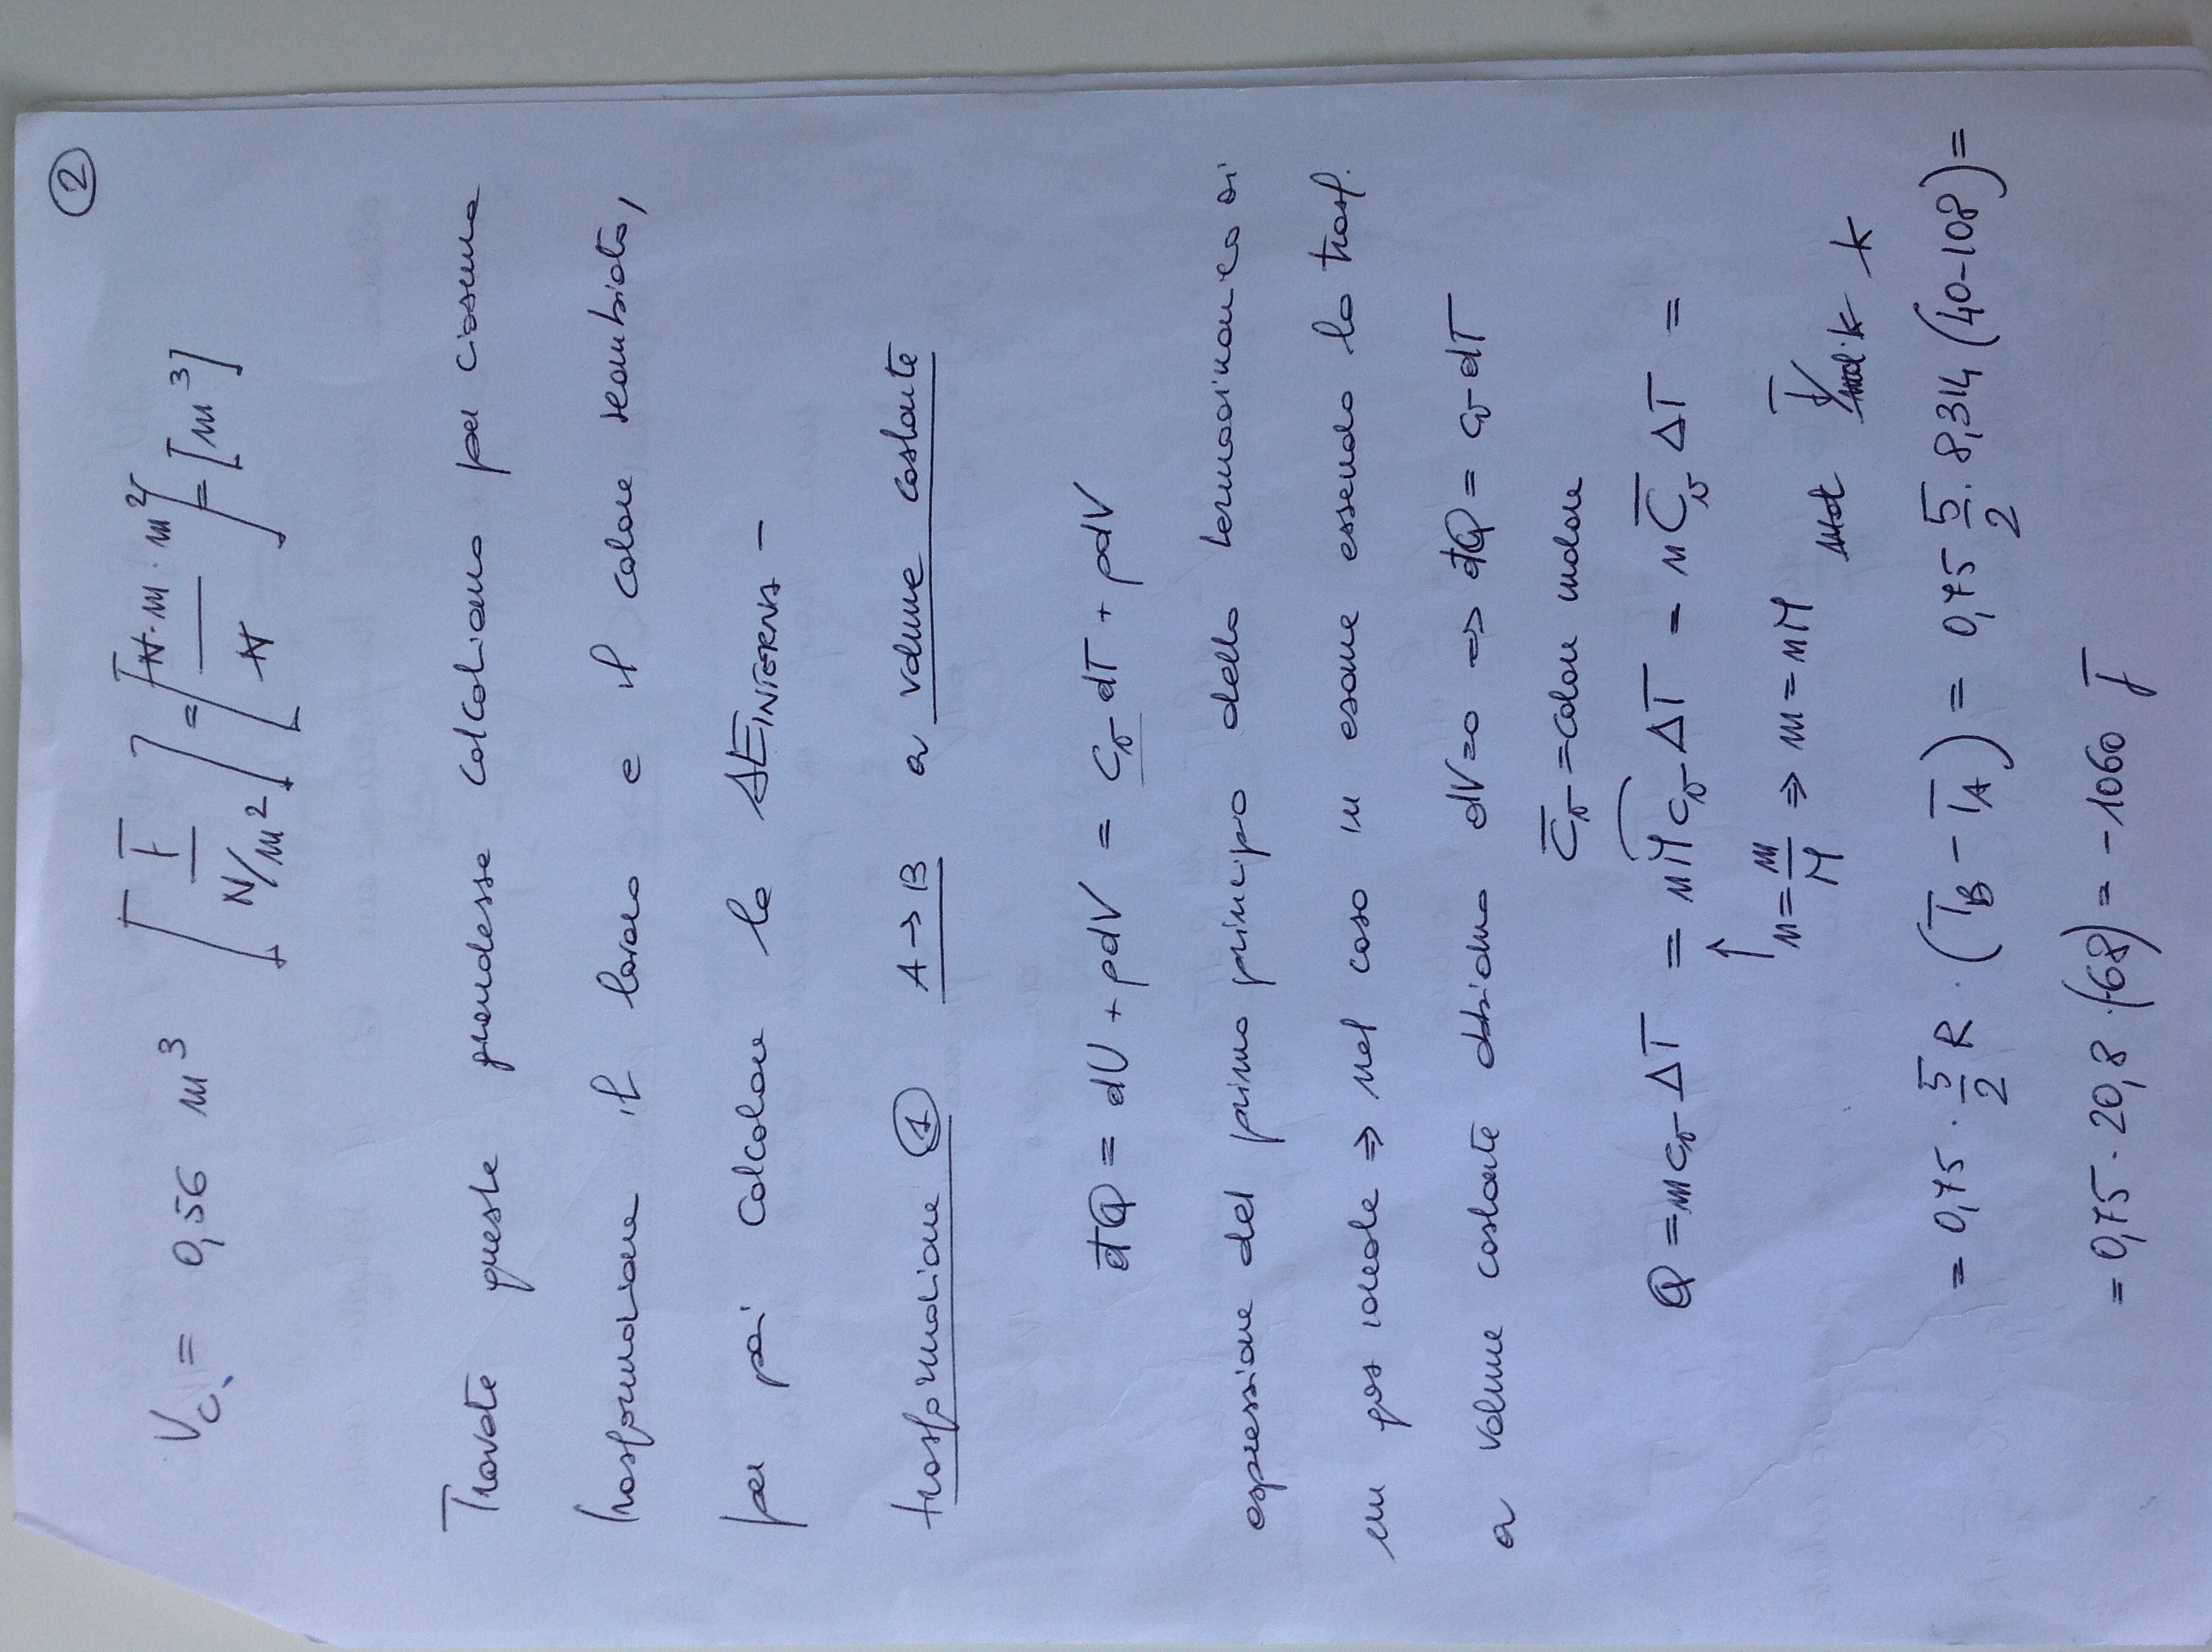 2
V_C = 0,56 m³ [J / N/m²] = [N·m·m² / N] = [m³]
Trovate queste grandezze calcoliamo per ciascuna
trasformazione il lavoro e il calore scambiato,
per poi calcolare la ΔE_INTERNA –
trasformazione 1 A → B a volume costante
đQ = dU + pdV = c_v dT + pdV
espressione del primo principio della termodinamica di
un gas ideale ⇒ nel caso in esame essendo la trasf.
a volume costante abbiamo dV=0 ⇒ đQ = c_v dT
C̅_v = calore molare
Q = m c_v ΔT = nM c_v ΔT = n C̅_v ΔT =
↑ n = m/M ⇒ m = nM mol J/mol·K K
= 0,75 · 5/2 R · (T_B – T_A) = 0,75 5/2 · 8,314 (40–108) =
= 0,75 · 20,8 · (-68) = –1060 J